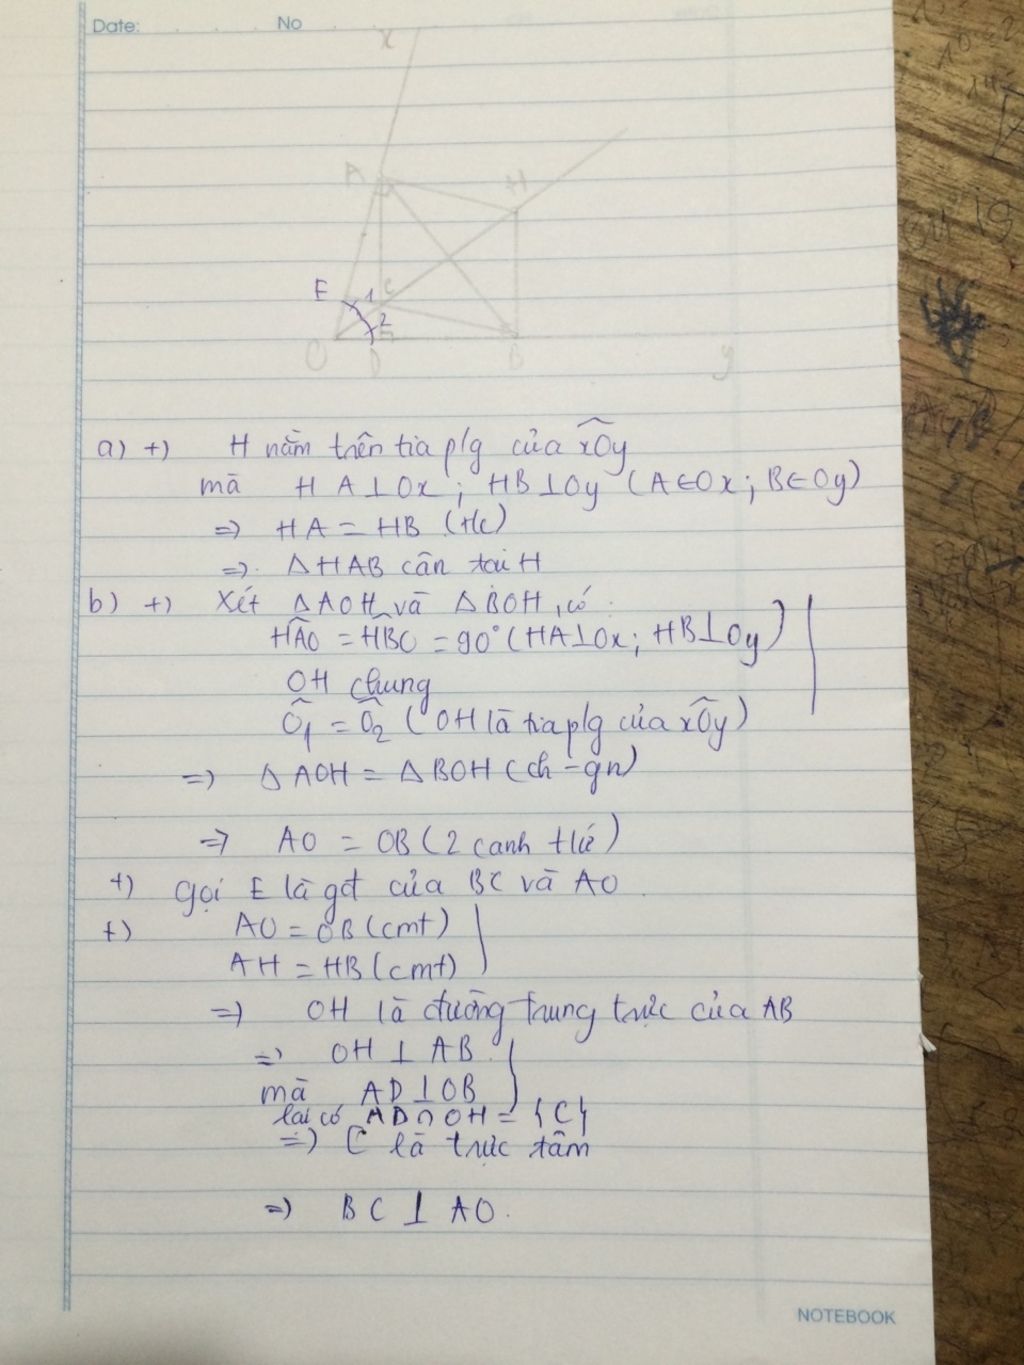 Date: No
x
A H
E 1 C
2
O D B y
a) +) H nằm trên tia p/g của xÔy
mà HA⊥Ox ; HB⊥Oy (A∈Ox; B∈Oy)
=> HA = HB (t/c)
=> ΔHAB cân tại H
b) +) Xét ΔAOH và ΔBOH, có
HÂO = HB̂O = 90° (HA⊥Ox; HB⊥Oy)
OH chung
Ô1 = Ô2 (OH là tia p/g của xÔy)
=> ΔAOH = ΔBOH (ch - gn)
=> AO = OB (2 cạnh t/ứ)
+) Gọi E là gđ của BC và AO
+) AO = OB (cmt)
AH = HB (cmt)
=> OH là đường trung trực của AB
=> OH ⊥ AB
mà AD⊥OB
lại có AD∩OH = {C}
=> C là trực tâm
=> BC ⊥ AO.
NOTEBOOK